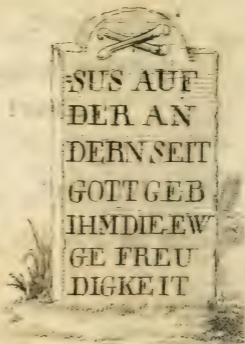 SUS AUF
DER AN
DERN SEIT
GOTT GEB
IHM DIE EW
GE FREU
DIGKEIT